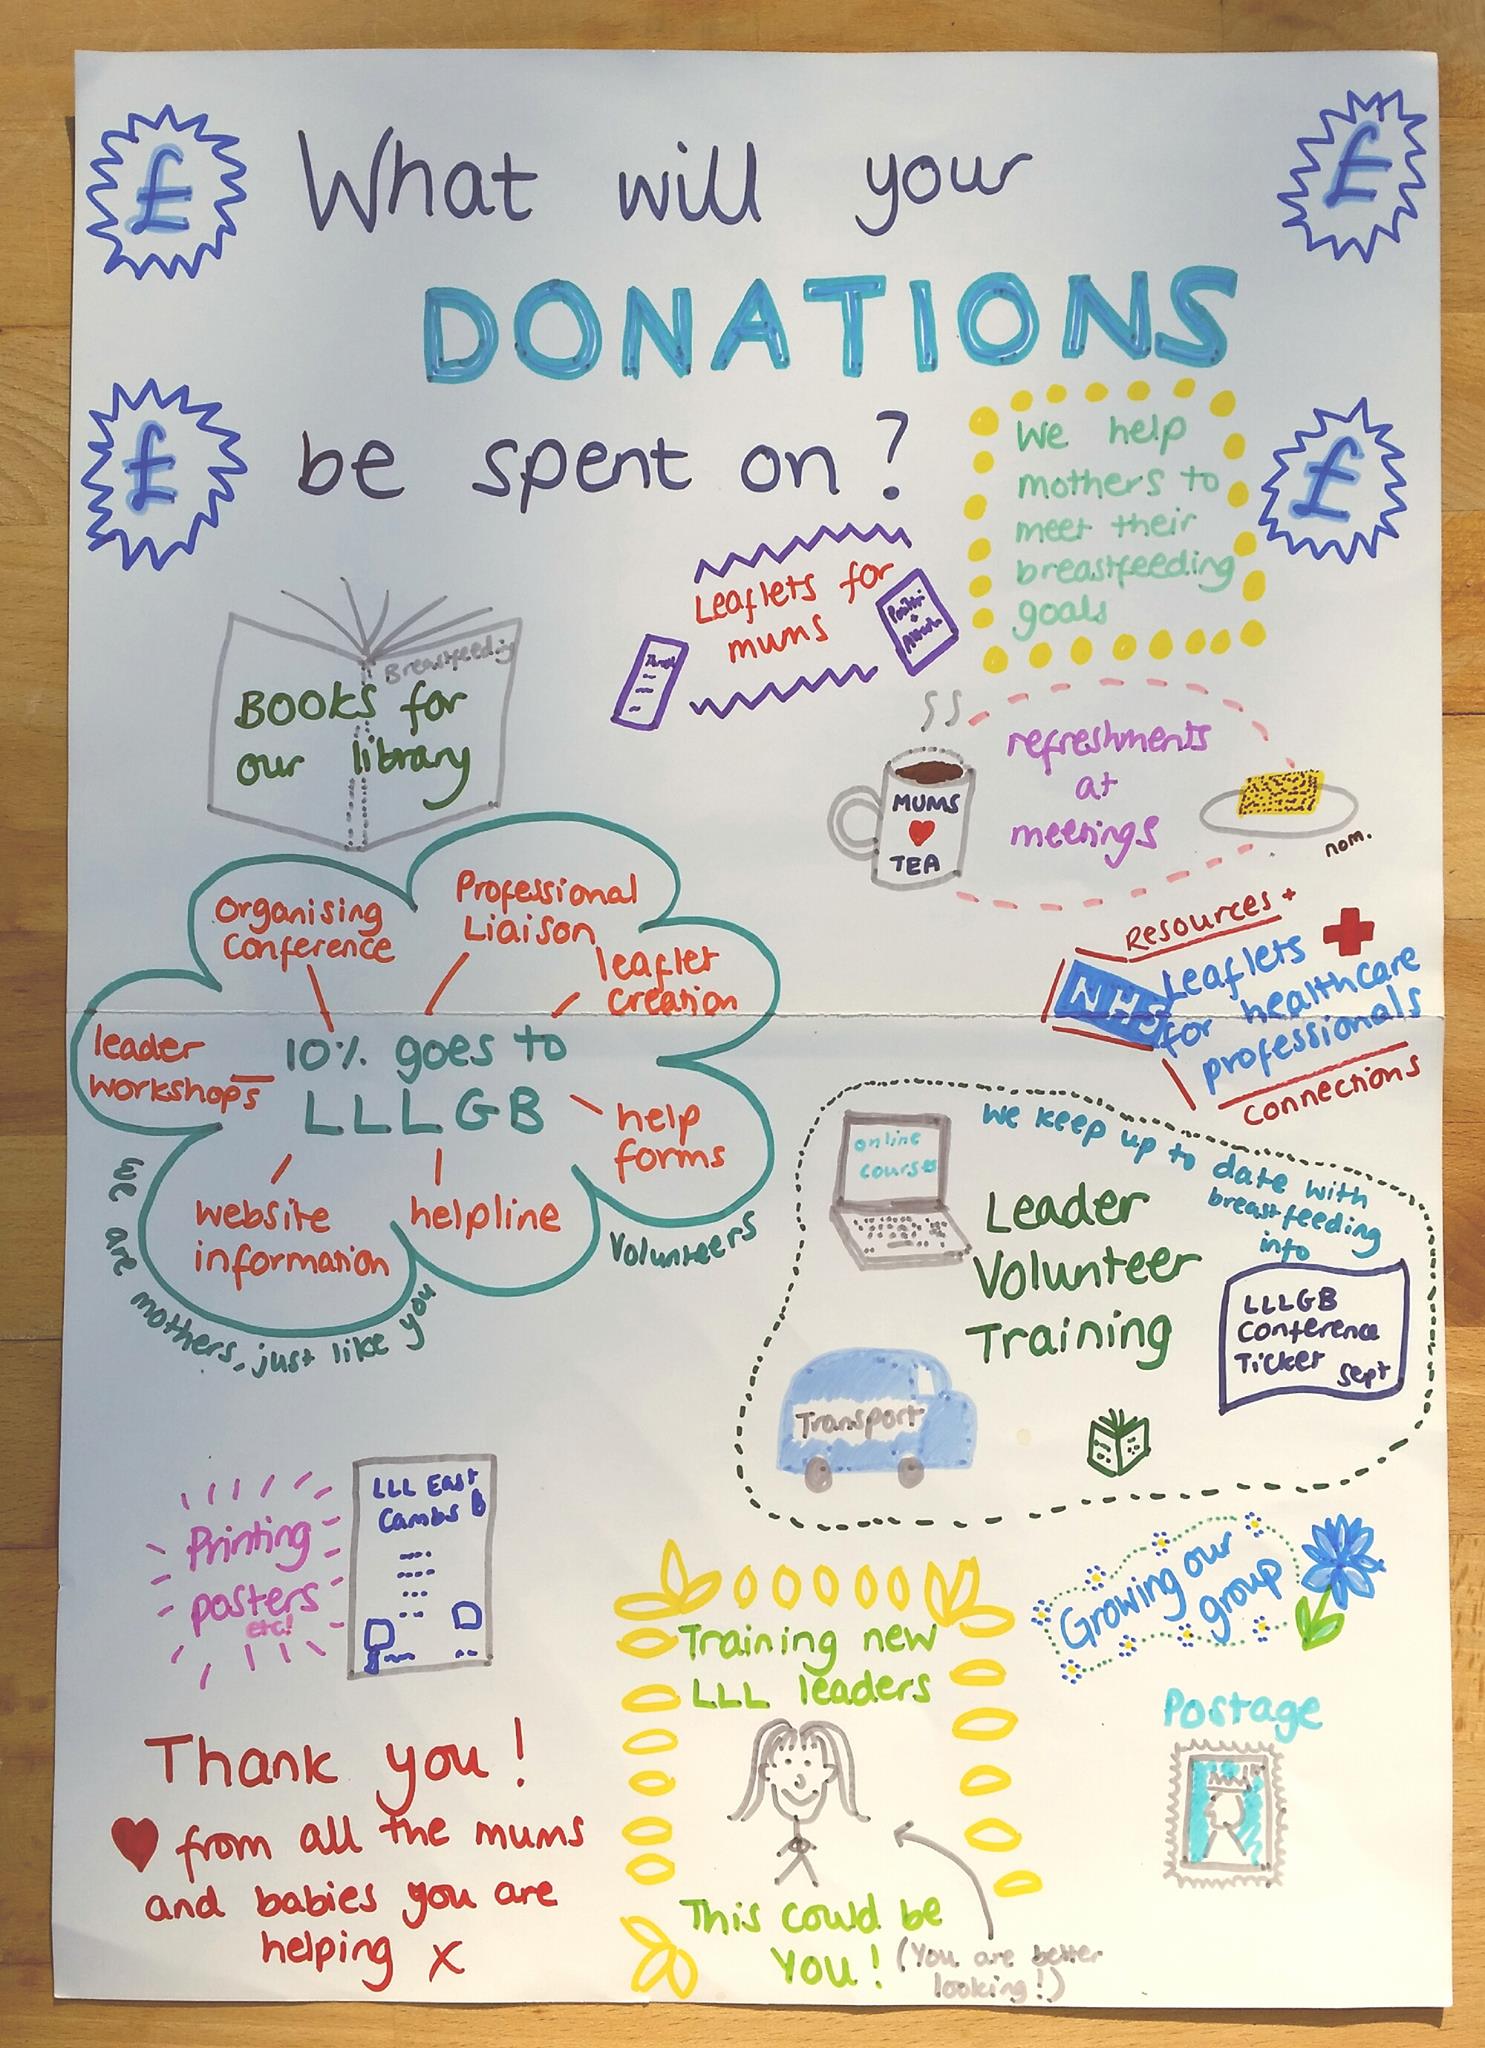 £
£
What will your
DONATIONS
£
be spent on?
£
We help
mothers to
meet their
breastfeeding
goals
Leaflets for
mums
Breastfeeding
BOOKS for
our library
MUMS
TEA
refreshments
at
meetings
nom.
Organising
Conference
Professional
Liaison
leaflet
creation
leader
workshops
10% goes to
LLLGB
help
forms
website
information
helpline
we are mothers, just like you
Volunteers
Resources +
NHS
Leaflets
for healthcare
professionals
Connections
online
courses
We keep up to date with
breastfeeding
info
Leader
Volunteer
Training
LLLGB
Conference
Ticket
Sept
Transport
Printing
posters
etc!
LLL East
Cambs
Training new
LLL leaders
Growing our
group
Postage
Thank you!
from all the mums
and babies you are
helping X
This could be
You!
(You are better
looking!)